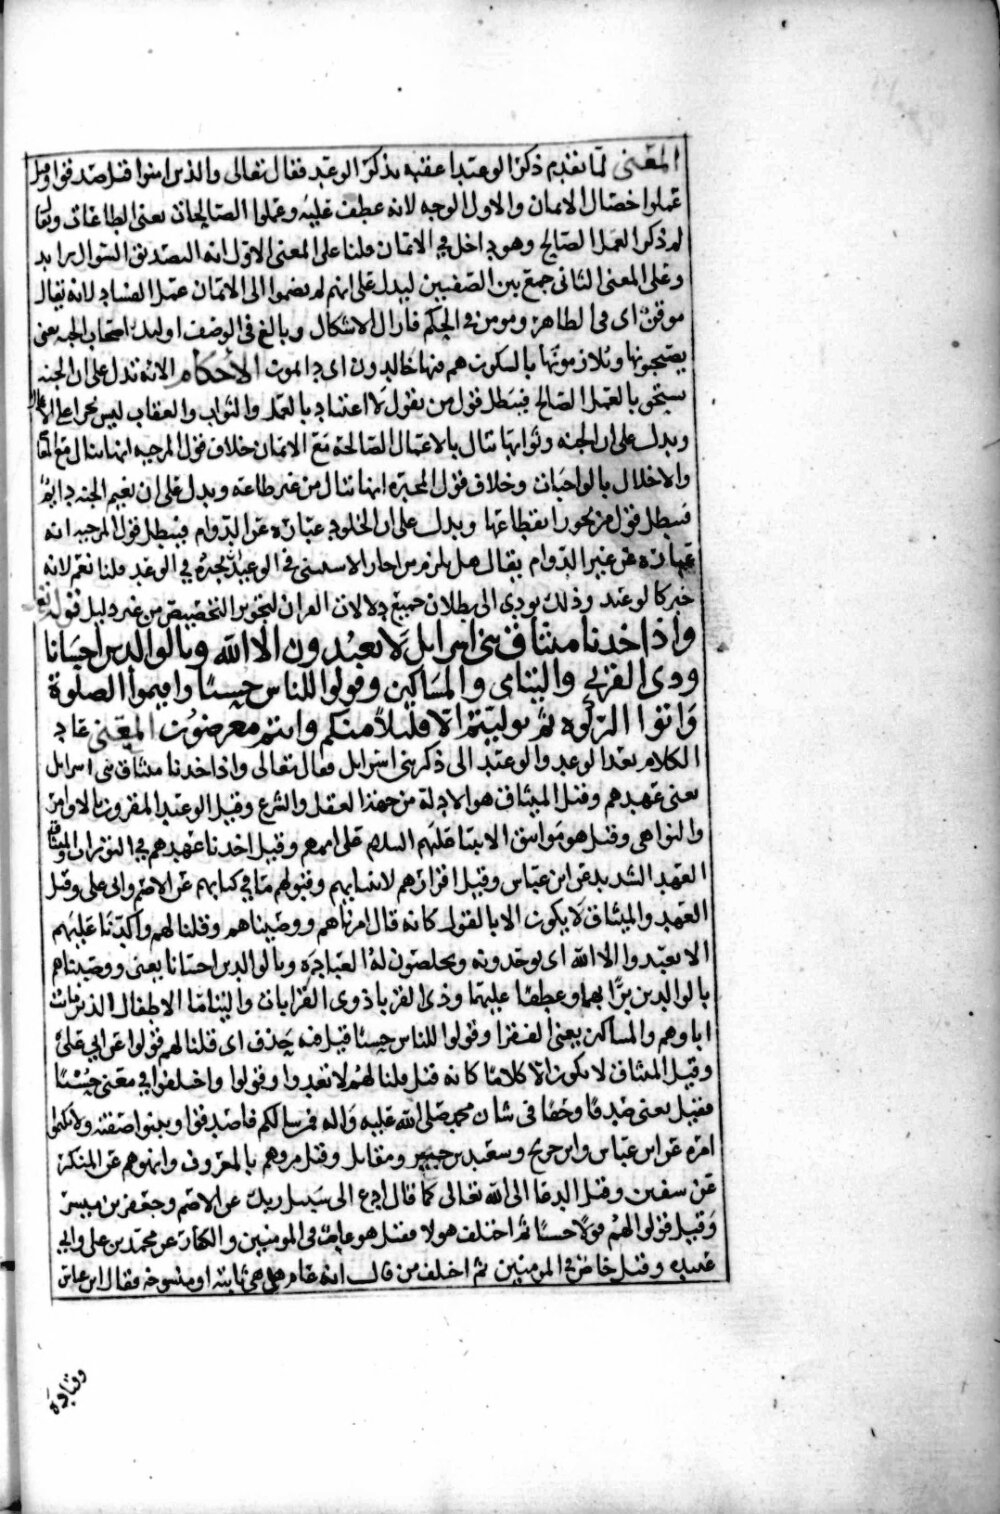 المعنى لما تقدم ذكر الوعيد اعقبه بذكر الوعد فقال تعالى والذين امنوا قيل صدقوا وقيل
عملوا خصال الايمان والاول الوجه لانه عطف عليه وعملوا الصالحات يعنى الطاعات ومتى
لم ذكر العمل الصالح وهو داخل في الايمان قلنا على المعنى الاول انه التصديق السوال زايد
وعلى المعنى الثانى جمع بين الصفتين ليدل على انهم لم يضموا الى الايمان عمل الفساد لانه يقال
مومن اى في الظاهر ومومن في الحكم فازال الاشكال وبالغ في الوصف اوليك اصحاب الجنه يعنى
يصحبونها ويلازمونها بالسكون هم فيها خالدون اى دايمون الاحكام الايه تدل على ان الجنه
تستحق بالعمل الصالح فيبطل قول من يقول لا اعتداد بالعمل والثواب والعقاب ليس بجزا على الاعمال
ويدل على ان الجنه وثوابها تنال بالاعمال الصالحة مع الايمان خلاف قول المرجيه انها تنال مع
والاخلال بالواجبات وخلاف قول المجبرة انها تنال من غير طاعه ويدل على ان نعيم الجنه دايم
فيبطل قول من يجوز انقطاعها ويدل على ان الخلود عبارة عن الدوام فيبطل قول المرجيه انه
عبارة عن غير الدوام يقال هل يلزم من اجاز الاستثنى في الوعيد تجويزه في الوعد قلنا نعم لانه
خبر كالوعيد وذلك يودي الى بطلان جميع دلالات القران لتجويز التخصيص من غير دليل قوله تعالى
واذ اخذنا ميثاق بنى اسرايل لا تعبدون الا الله وبالوالدين احسانا
وذى القربي واليتامى والمساكين وقولوا للناس حسنا واقيموا الصلوة
واتوا الزكوه ثم توليتم الا قليلا منكم وانتم معرضون المعنى عاد
الكلام بعد الوعد والوعيد الى ذكر بنى اسرايل فقال تعالى واذ اخذنا ميثاق بنى اسرايل
يعنى عهدهم وقيل الميثاق هو الادلة من جهة العقل والشرع وقيل الوعيد المقرون بالاوامر
والنواهى وقيل هو مواثيق الانبيا عليهم السلام على اممهم وقيل اخذنا عهدهم في التوراة والميثاق
العهد الشديد عن ابن عباس وقيل اقرارهم لانبيايهم وقبولهم ما في كتابهم عن الاصم وابى على وقيل
العهد والميثاق لا يكون الا بالقول كانه قال امرناهم ووصيناهم وقلنا لهم واكدنا عليهم
الا تعبدوا الا الله اى توحدونه وتخلصون له العبادة وبالوالدين احسانا يعنى ووصيناهم
بالوالدين برا بهما وعطفا عليهما وذى القربا ذوى القرابات واليتاما الاطفال الذين مات
اباوهم والمساكين يعنى الفقرا وقولوا للناس حسنا قيل فيه حذف اى قلنا لهم قولوا عن ابي علي
وقيل الميثاق لا يكون الا كلاما كانه قيل قلنا لهم لا تعبدوا وقولوا واختلفوا في معنى حسنا
فقيل يعنى صدقا وحقا في شان محمد صلى الله عليه واله فمن سالكم فاصدقوا وبينوا صفته ولا تكتموا
امره عن ابن عباس وابن جريج وسعيد بن جبير ومقاتل وقيل مروهم بالمعروف وانهوهم عن المنكر
عن سفين وقيل الدعا الى الله تعالى كما قال ادع الى سبيل ربك عن الاصم وجعفر بن ميسر
وقيل قولوا لهم قولا حسنا ثم اختلف هولا فقيل هو عام في المومنين والكفار عن محمد بن علي وابي
عبيده وقيل خاص في المومنين ثم اختلف من قال انه عام هل هي ثابته او منسوخه فقال ابن عباس
وقتادة